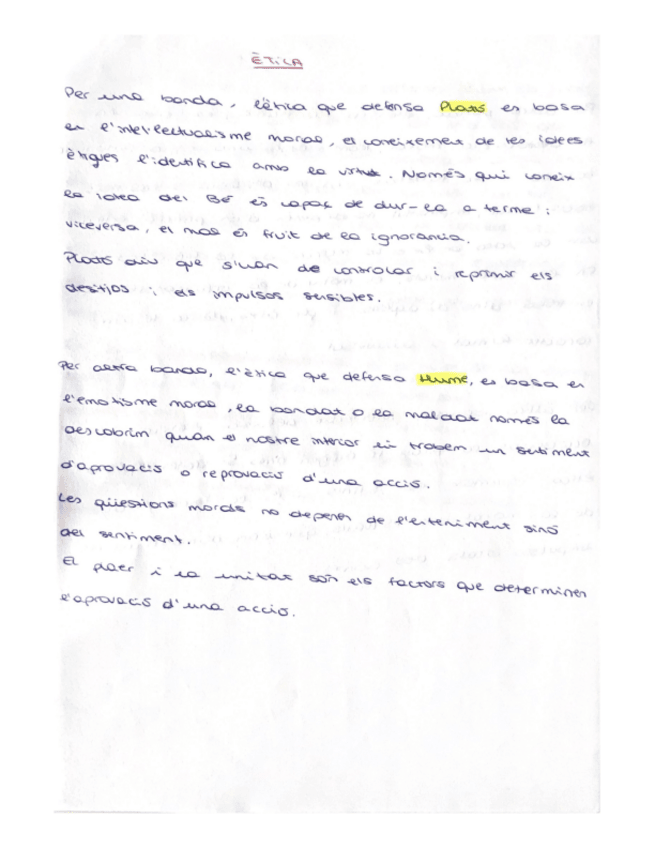 ÈTICA
Per una banda, l'ètica que defensa Plató, es basa
en l'intel·lectualisme moral, el coneixement de les idees
ètiques l'identifica amb la virtut. Només qui coneix
la idea del BÉ és capaç de dur-la a terme i
viceversa, el mal és fruit de la ignorància.
Plató diu que s'han de controlar i reprimir els
desitjos i els impulsos sensibles.
Per altra banda, l'ètica que defensa Hume, es basa en
l'emotisme moral, la bondat o la maldat només la
descobrim quan el nostre interior hi trobem un sentiment
d'aprovació o reprovació d'una acció.
Les qüestions morals no depenen de l'enteniment sinó
del sentiment.
El plaer i la unitat són els factors que determinen
l'aprovació d'una acció.